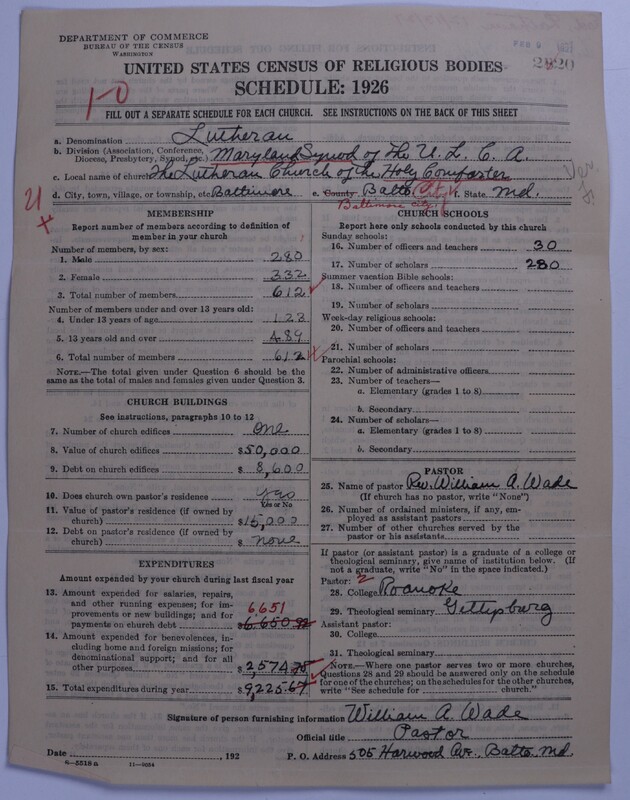 DEPARTMENT OF COMMERCE
BUREAU OF THE CENSUS
WASHINGTON
UNITED STATES CENSUS OF RELIGIOUS BODIES
SCHEDULE: 1926
1-0
FILL OUT A SEPARATE SCHEDULE FOR EACH CHURCH. SEE INSTRUCTIONS ON THE BACK OF THIS SHEET
a. Denomination Lutheran
b. Division (Association, Conference, Diocese, Presbytery, Synod, etc.) Maryland Synod of The U. L. C. A.
c. Local name of church The Lutheran Church of the Holy Comforter
d. City, town, village, or township, etc. Baltimore e. County Balto. City f. State Md.
Baltimore city
Ver.
MEMBERSHIP
Report number of members according to definition of member in your church
Number of members, by sex:
1. Male 280
2. Female 332
3. Total number of members 612
Number of members under and over 13 years old:
4. Under 13 years of age 123
5. 13 years old and over 489
6. Total number of members 612
NOTE.—The total given under Question 6 should be the same as the total of males and females given under Question 3.
CHURCH BUILDINGS
See instructions, paragraphs 10 to 12
7. Number of church edifices One
8. Value of church edifices $50,000
9. Debt on church edifices $ 8,600
10. Does church own pastor's residence Yes
Yes or No
11. Value of pastor's residence (if owned by church) $15,000
12. Debt on pastor's residence (if owned by church) $ none
EXPENDITURES
Amount expended by your church during last fiscal year
13. Amount expended for salaries, repairs, and other running expenses; for improvements or new buildings; and for payments on church debt $6,650.92
6651
14. Amount expended for benevolences, including home and foreign missions; for denominational support; and for all other purposes $2,574.75
15. Total expenditures during year $9,225.67
CHURCH SCHOOLS
Report here only schools conducted by this church
Sunday schools:
16. Number of officers and teachers 30
17. Number of scholars 280
Summer vacation Bible schools:
18. Number of officers and teachers
19. Number of scholars
Week-day religious schools:
20. Number of officers and teachers
21. Number of scholars
Parochial schools:
22. Number of administrative officers
23. Number of teachers—
a. Elementary (grades 1 to 8)
b. Secondary
24. Number of scholars—
a. Elementary (grades 1 to 8)
b. Secondary
PASTOR
25. Name of pastor Rev. William A. Wade
(If church has no pastor, write "None")
26. Number of ordained ministers, if any, employed as assistant pastors
27. Number of other churches served by the pastor or his assistants
If pastor (or assistant pastor) is a graduate of a college or theological seminary, give name of institution below. (If not a graduate, write "No" in the space indicated.)
Pastor: 2
28. College Roanoke
29. Theological seminary Gettysburg
Assistant pastor:
30. College
31. Theological seminary
NOTE.—Where one pastor serves two or more churches, Questions 28 and 29 should be answered only on the schedule for one of the churches; on the schedules for the other churches, write "See schedule for church."
Signature of person furnishing information William A. Wade
Official title Pastor
Date , 192 P. O. Address 505 Harwood Av., Balto. Md.
6—5518 a 11—9054